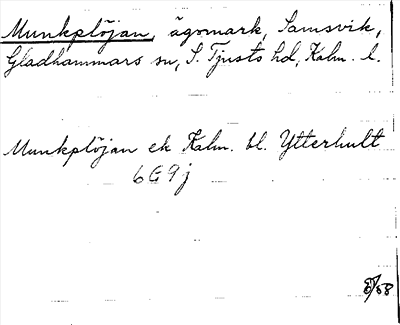 Munkplöjan, ägomark, Samsvik,
Gladhammars sn, S. Tjusts hd, Kalm. l.
Munkplöjan ek Kalm. bl. Ytterhult
6G9j